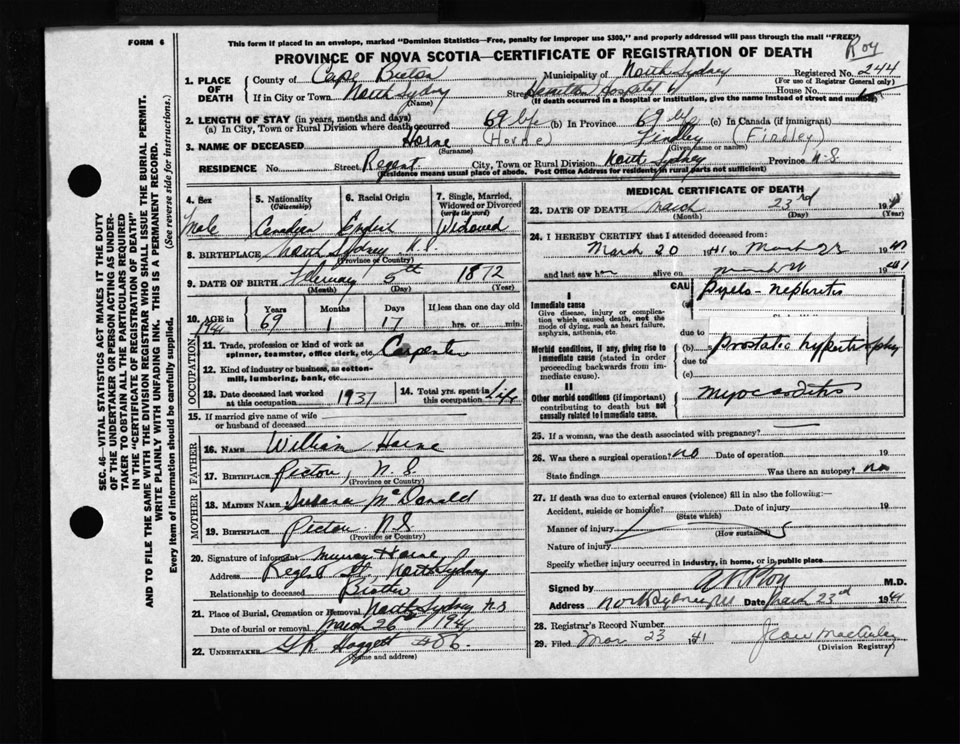 FORM 6
This form if placed in an envelope, marked "Dominion Statistics—Free, penalty for improper use $300," and properly addressed will pass through the mail "FREE"
Roy
PROVINCE OF NOVA SCOTIA—CERTIFICATE OF REGISTRATION OF DEATH
1. PLACE OF DEATH
County of Cape Breton Municipality of North Sydney Registered No. 244
(For use of Registrar General only)
If in City or Town North Sydney Street Hamilton Hospital House No.
(Name) (If death occurred in a hospital or institution, give the name instead of street and number)
2. LENGTH OF STAY (in years, months and days)
(a) In City, Town or Rural Division where death occurred 69 (b) In Province 69 (c) In Canada (if immigrant)
3. NAME OF DECEASED Horne (Horne) Findley (Findley)
(Surname) (Given name or names)
RESIDENCE No. Street Regent City, Town or Rural Division North Sydney Province N.S.
(Residence means usual place of abode. Post Office Address for residents in rural parts not sufficient)
4. Sex Male
5. Nationality (Citizenship) Canadian
6. Racial Origin English
7. Single, Married, Widowed or Divorced (write the word) Widowed
8. BIRTHPLACE North Sydney N.S.
(Province or Country)
9. DATE OF BIRTH February 5th 1872
(Month) (Day) (Year)
10. AGE in 1941 Years 69 Months 1 Days 17 If less than one day old hrs. or min.
OCCUPATION
11. Trade, profession or kind of work as spinner, teamster, office clerk, etc. Carpenter
12. Kind of industry or business, as cotton-mill, lumbering, bank, etc.
13. Date deceased last worked at this occupation 1937
14. Total yrs. spent in this occupation Life
15. If married give name of wife or husband of deceased
FATHER
16. Name William Horne
17. Birthplace Pictou, N.S.
(Province or Country)
MOTHER
18. Maiden Name McDonald
19. Birthplace Pictou N.S
(Province or Country)
20. Signature of informant Murray Horne
Address Regent St, North Sydney
Relationship to deceased Brother
21. Place of Burial, Cremation or Removal North Sydney N.S
Date of burial or removal March 26th 1941
22. UNDERTAKER #86
(Name and address)
MEDICAL CERTIFICATE OF DEATH
23. DATE OF DEATH March 23rd 194
(Month) (Day) (Year)
24. I HEREBY CERTIFY that I attended deceased from:
March 20 1941 to March 23 1941
and last saw h alive on 1941
CAU
I
Immediate cause
Give disease, injury or complication which caused death, not the mode of dying, such as heart failure, asphyxia, asthenia, etc.
Pyelo-nephritis
due to
Morbid conditions, if any, giving rise to immediate cause (stated in order proceeding backwards from immediate cause).
(b) Prostatic hypertrophy
due to
(c)
II
Other morbid conditions (if important) contributing to death but not causally related to immediate cause.
Myocarditis
25. If a woman, was the death associated with pregnancy?
26. Was there a surgical operation? no Date of operation 19
State findings Was there an autopsy? no
27. If death was due to external causes (violence) fill in also the following:—
Accident, suicide or homicide? Date of injury 19
(State which)
Manner of injury
(How sustained)
Nature of injury
Specify whether injury occurred in industry, in home, or in public place
Signed by Roy M.D.
Address North Sydney NS Date March 23rd 1941
28. Registrar's Record Number
29. Filed Mar 23 1941
(Division Registrar)
SEC. 46—VITAL STATISTICS ACT MAKES IT THE DUTY OF THE UNDERTAKER OR PERSON ACTING AS UNDERTAKER TO OBTAIN ALL THE PARTICULARS REQUIRED IN THE "CERTIFICATE OF REGISTRATION OF DEATH" AND TO FILE THE SAME WITH THE DIVISION REGISTRAR WHO SHALL ISSUE THE BURIAL PERMIT.
WRITE PLAINLY WITH UNFADING INK. THIS IS A PERMANENT RECORD.
Every item of information should be carefully supplied. (See reverse side for instructions.)